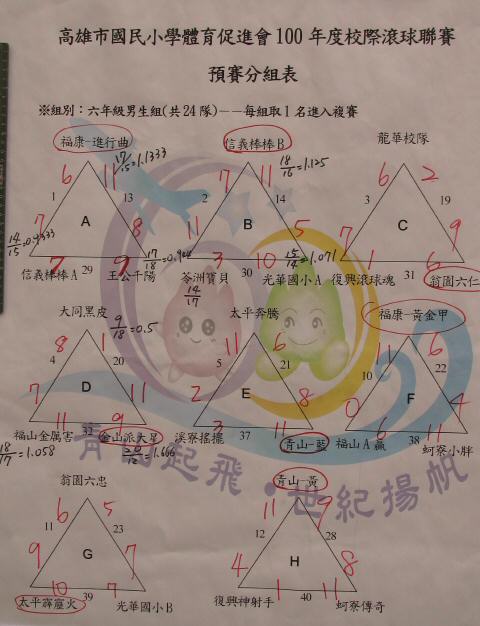 高雄市國民小學體育促進會 100 年度校際滾球聯賽
預賽分組表
※組別：六年級男生組(共24隊)－－每組取1名進入複賽
福康-進行曲
信義棒棒B
龍華校隊
6 11 17/15=1.1333
7 11 18/16=1.125
6 2
1 A 13
2 B 14
3 C 19
7 8
11 5
7 9
14/15=0.9333
7 9 17/18=0.944
3 10 15/14=1.071
1 6
信義棒棒A 29 王公千陽
苓洲寶貝 30 光華國小A
復興滾球魂 31 翁園六仁
14/17
大同黑皮 9/18=0.5
太平奔騰
福康-黃金甲
8 1
11 6
11 6
4 D 20
5 E 21
10 F 22
7 11
2 8
0 4
11 9
3 11
6 11
福山金厲害 32 金山派大星
溪寮搖擺 37 青山-藍
福山A贏 38 蚵寮小胖
18/17=1.058
20/12=1.666
青山起飛·世紀揚帆
翁園六忠
青山-黃
6 5
11 9
11 G 23
12 H 28
9 7
4 8
10 7
1 11
太平霹靂火 39 光華國小B
復興神射手 40 蚵寮傳奇